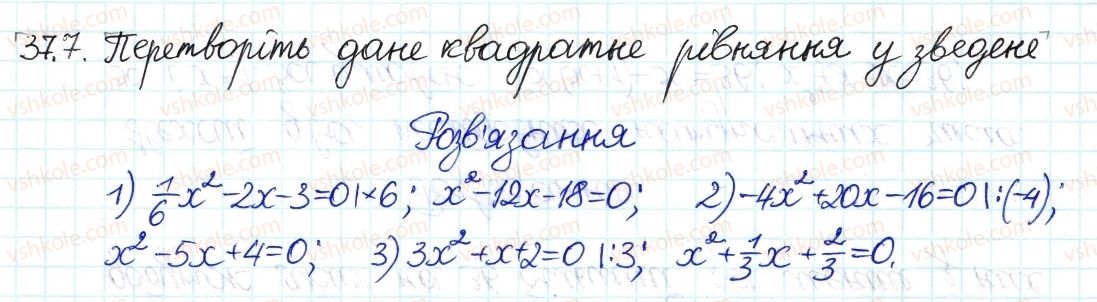 37.7. Перетворіть дане квадратне рівняння у зведене
Розв'язання
1) 1/6 x² - 2x - 3 = 0 | × 6; x² - 12x - 18 = 0; 2) -4x² + 20x - 16 = 0 | : (-4);
x² - 5x + 4 = 0; 3) 3x² + x + 2 = 0 | : 3; x² + 1/3 x + 2/3 = 0.